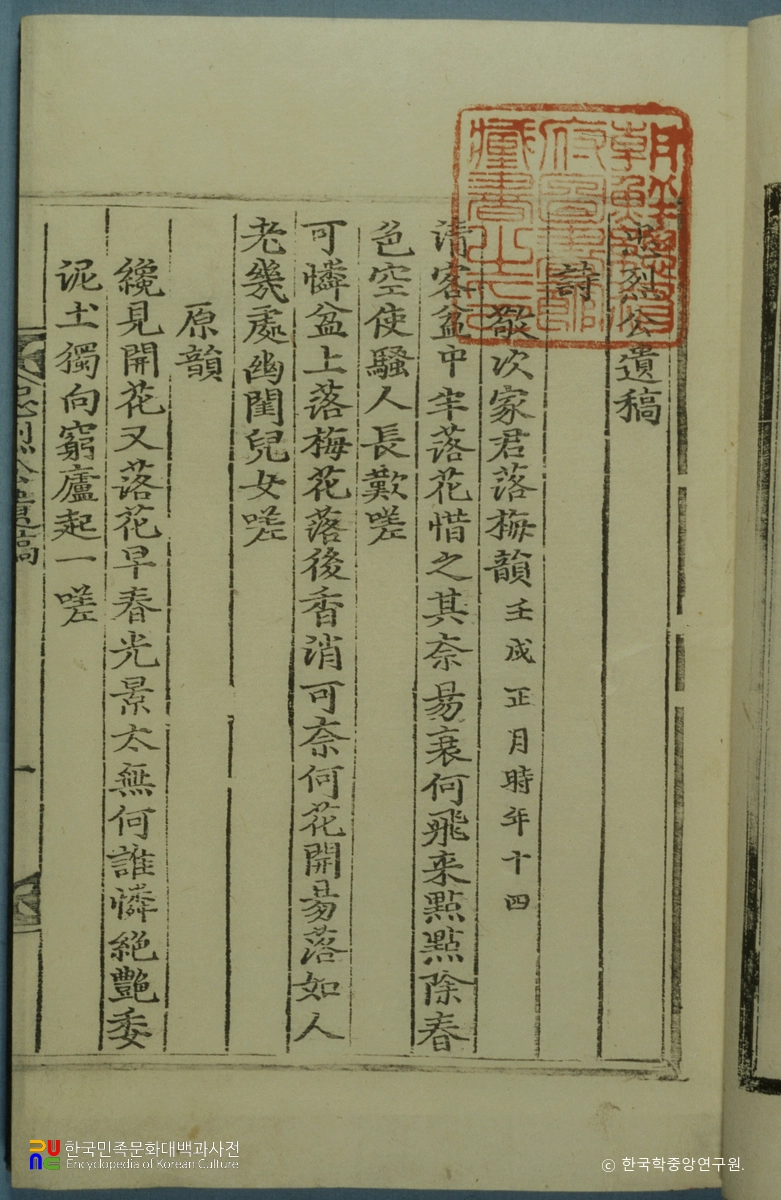 忠烈公遺稿
詩
敬次家君落梅韻 壬戌正月時年十四
清客盆中半落花惜之其奈易衰何飛来點點除春
色空使騷人長歎嗟
可憐盆上落梅花落後香消可奈何花開易落如人
老幾處幽閨兒女嗟
原韻
纔見開花又落花早春光景太無何誰憐絕艷委
泥土獨向窮廬起一嗟
忠烈公遺稿
一
朝鮮總督府圖書館藏書之印
한국민족문화대백과사전
Encyclopedia of Korean Culture
© 한국학중앙연구원.